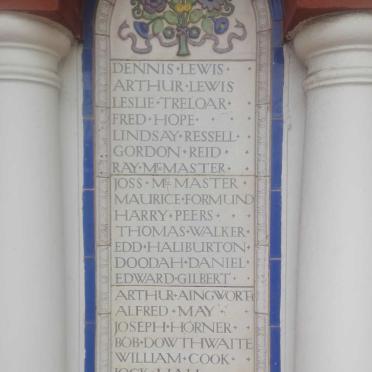 DENNIS·LEWIS·
ARTHUR·LEWIS
LESLIE·TRELOAR·
FRED·HOPE·
LINDSAY·RESSELL·
GORDON·REID·
RAY·Mc·MASTER·
JOSS·Mc·MASTER·
MAURICE·FORMUND
HARRY·PEERS·
THOMAS·WALKER·
EDD·HALIBURTON·
DOODAH·DANIEL·
EDWARD·GILBERT·
ARTHUR·AINGWORTH
ALFRED·MAY·
JOSEPH·HORNER·
BOB·DOWTHWAITE
WILLIAM·COOK·
JOCK·HALL